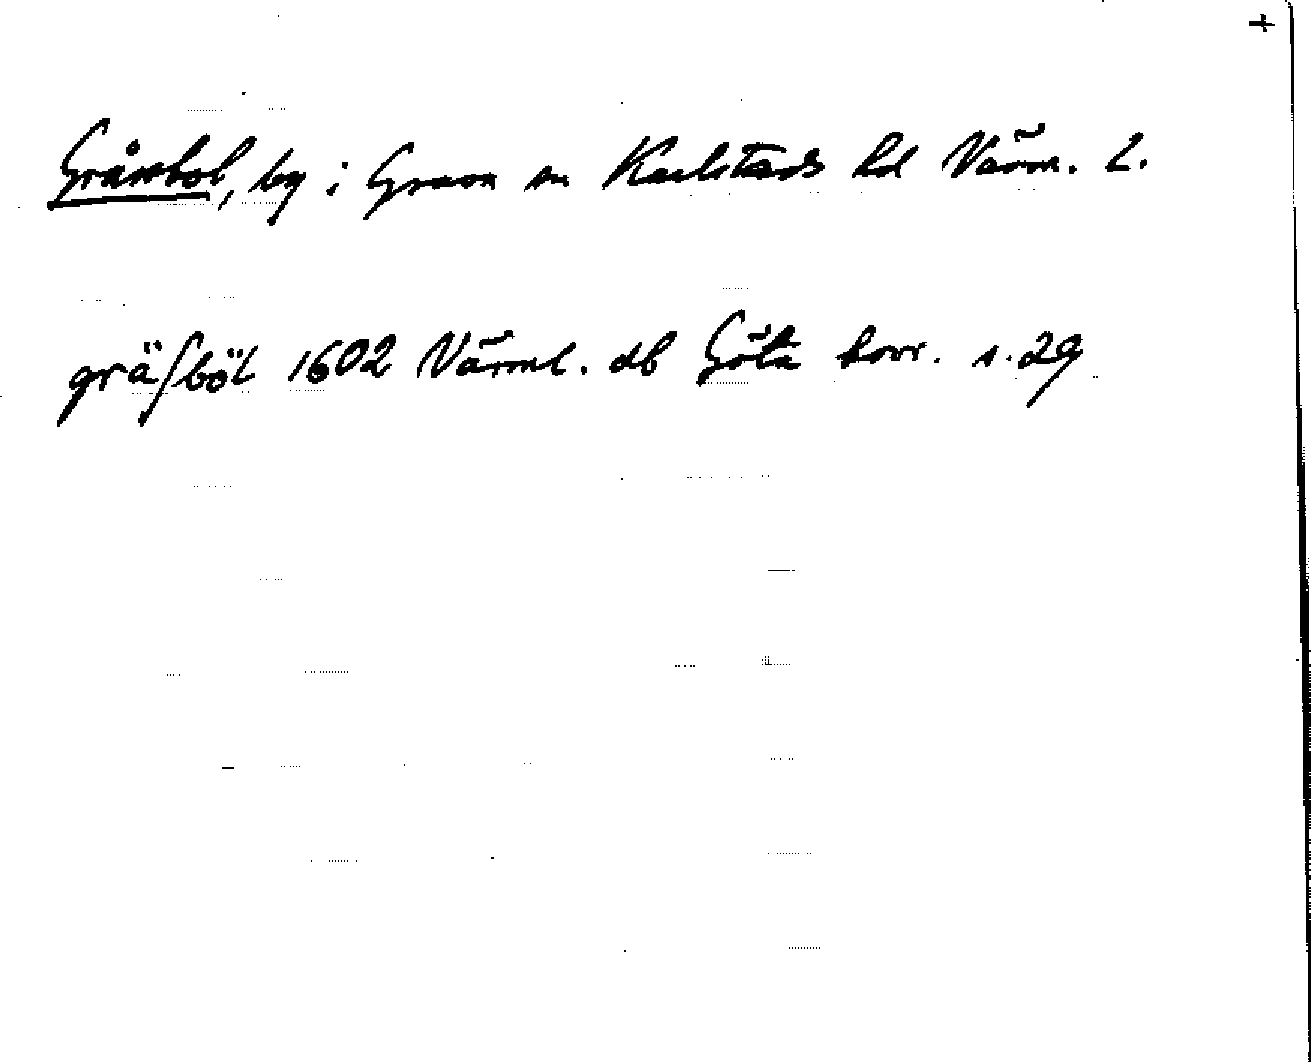 +
Gråssbol, by i Grava sn Karlstads hd Värm. L.
gräſböl 1602 Värml. db Göta hovr. s. 29